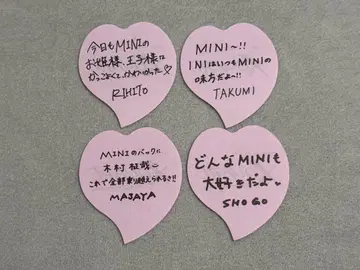 今日もMINIの
お姫様、王子様は
かっこよくて、かわいかった♡
RIHITO
MINI〜!!
INIはいつもMINIの
味方だよ〜!!
TAKUMI
MINIのバックに
木村柾哉〜
これで全部乗り越えられるさ!!
MAJAYA
どんなMINIも
大好きだよ
SHOGO